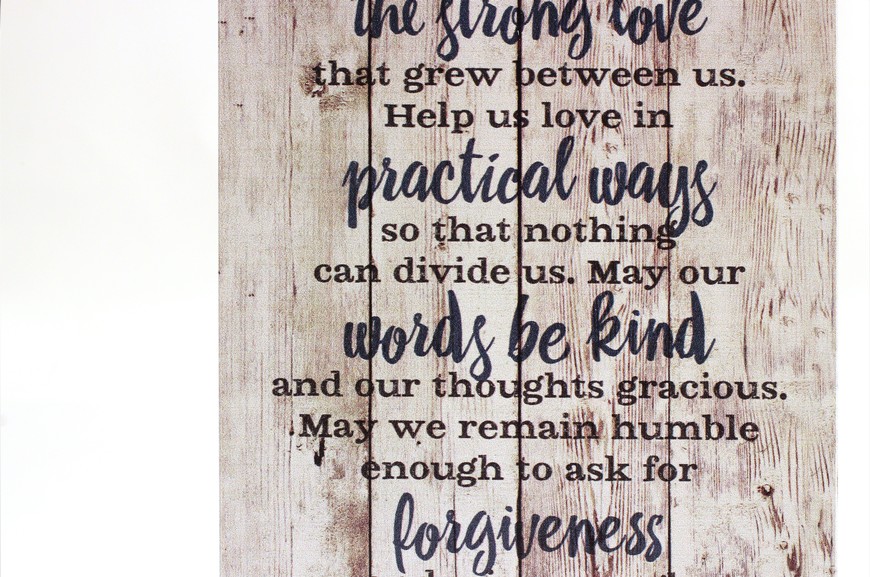 the strong love
that grew between us.
Help us love in
practical ways
so that nothing
can divide us. May our
words be kind
and our thoughts gracious.
May we remain humble
enough to ask for
forgiveness